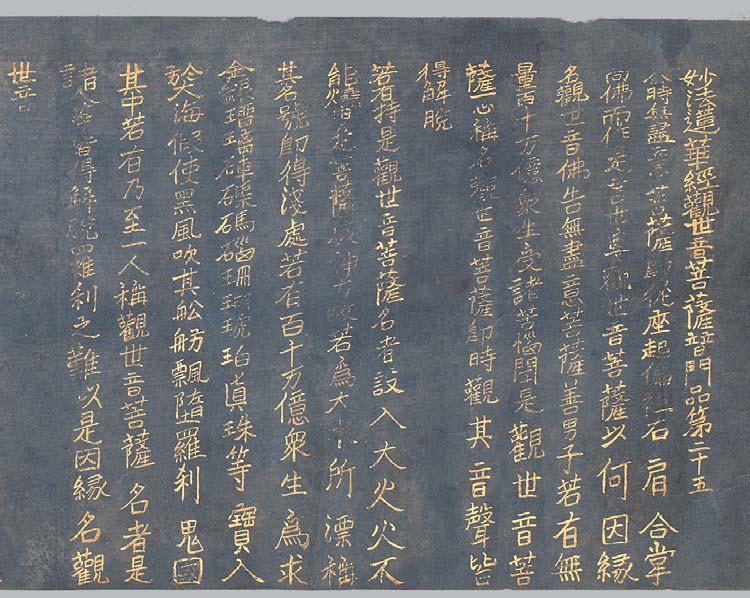 妙法蓮華經觀世音菩薩普門品第二十五
尒時無盡意菩薩即從座起偏袒右肩合掌
向佛而作是言世尊觀世音菩薩以何因緣
名觀世音佛告無盡意菩薩善男子若有無
量百千万億衆生受諸苦惱聞是觀世音菩
薩一心稱名觀世音菩薩即時觀其音聲皆
得解脫
若有持是觀世音菩薩名者設入大火火不
能燒由是菩薩威神力故若爲大水所漂稱
其名號即得淺處若有百千万億衆生爲求
金銀瑠璃硨磲碼碯珊瑚琥珀真珠等寶入
於大海假使黑風吹其舩舫飄墮羅刹鬼國
其中若有乃至一人稱觀世音菩薩名者是
諸人等皆得解脫羅刹之難以是因緣名觀
世音